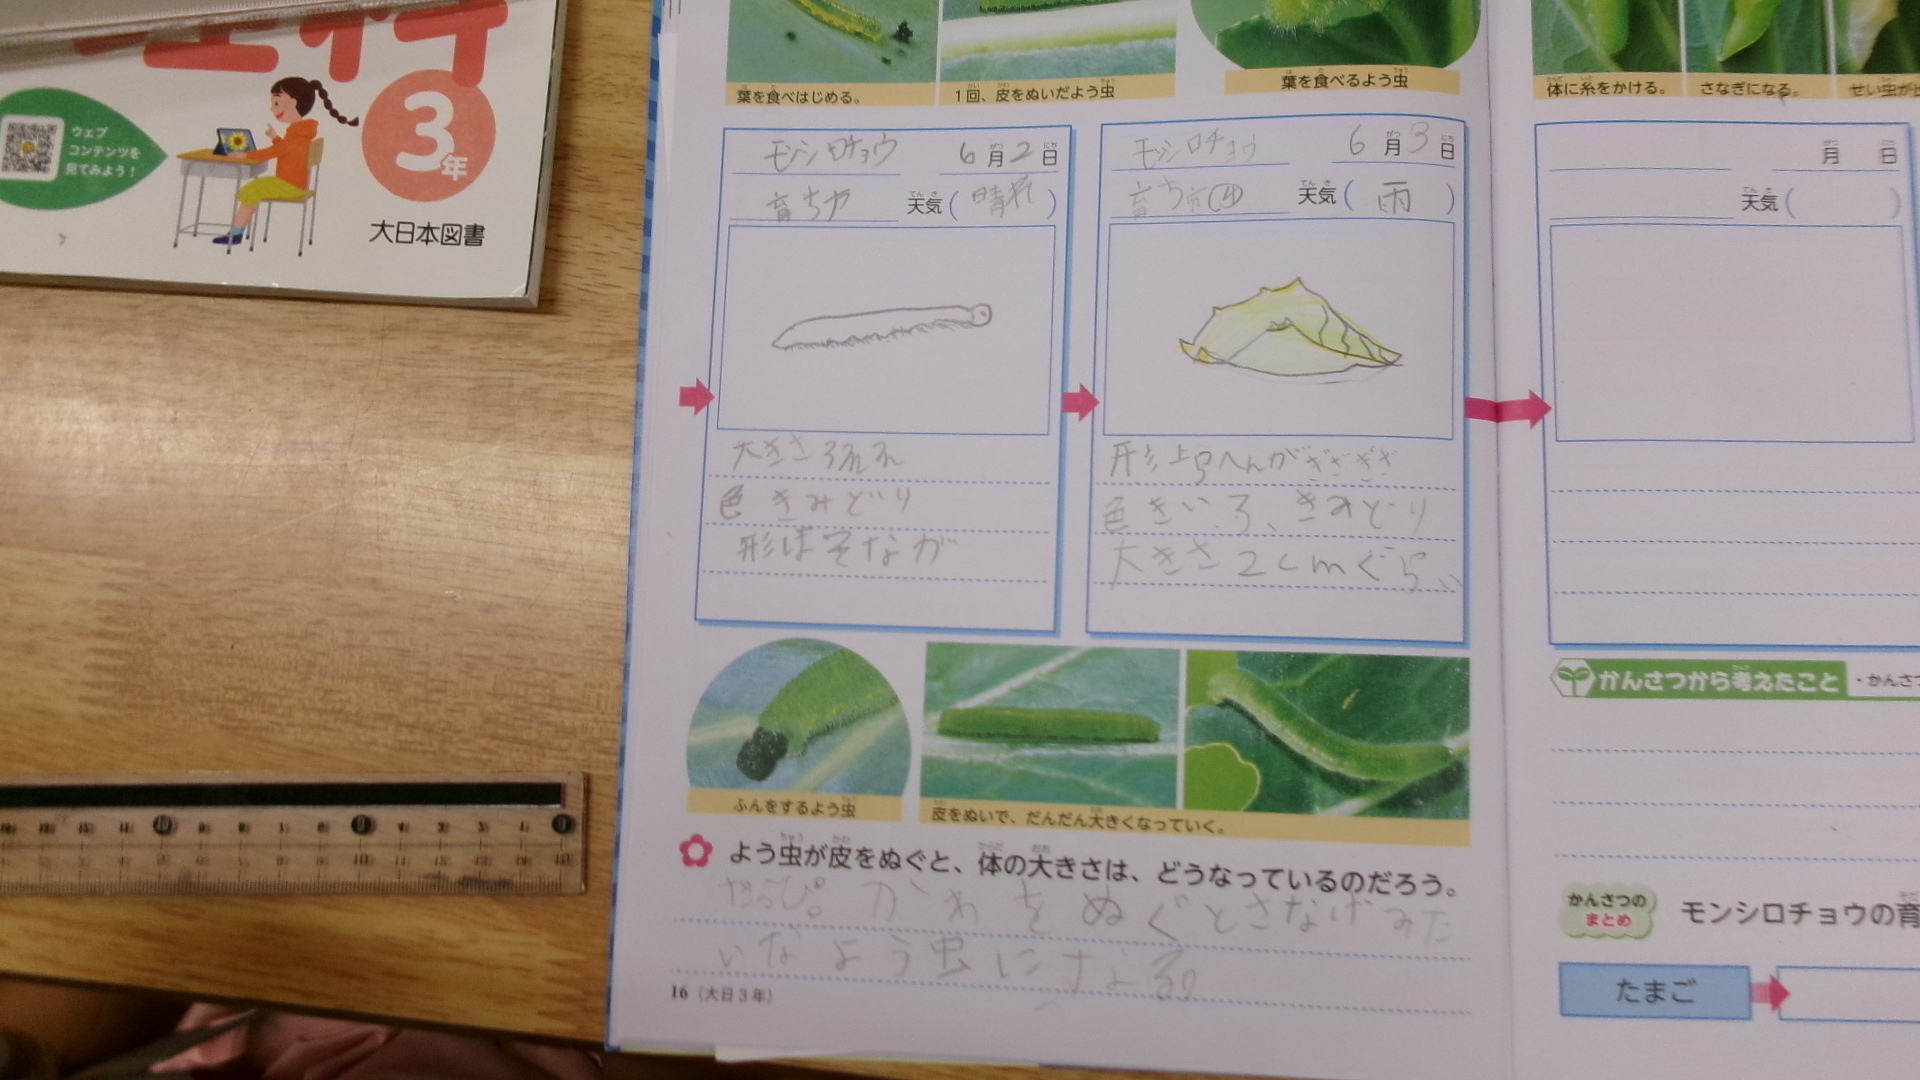 理科
3年
ウェブ
コンテンツを
見てみよう!
大日本図書
葉を食べはじめる。
1回、皮をぬいだよう虫
葉を食べるよう虫
体に糸をかける。
さなぎになる。
モンシロチョウ 6月2日
育ち方 天気(晴れ)
色 きみどり
形ほそなが
モンシロチョウ 6月3日
育ち方④ 天気(雨)
形 上らへんがぎざぎざ
色 きいろ、きみどり
大きさ2cmぐらい
月 日
天気( )
ふんをするよう虫
皮をぬいで、だんだん大きくなっていく。
よう虫が皮をぬぐと、体の大きさは、どうなっているのだろう。
だっぴ。かわをぬぐとさなぎみた
いなよう虫になる。
16(大日3年)
かんさつから考えたこと
かんさつの
まとめ
モンシロチョウの育
たまご